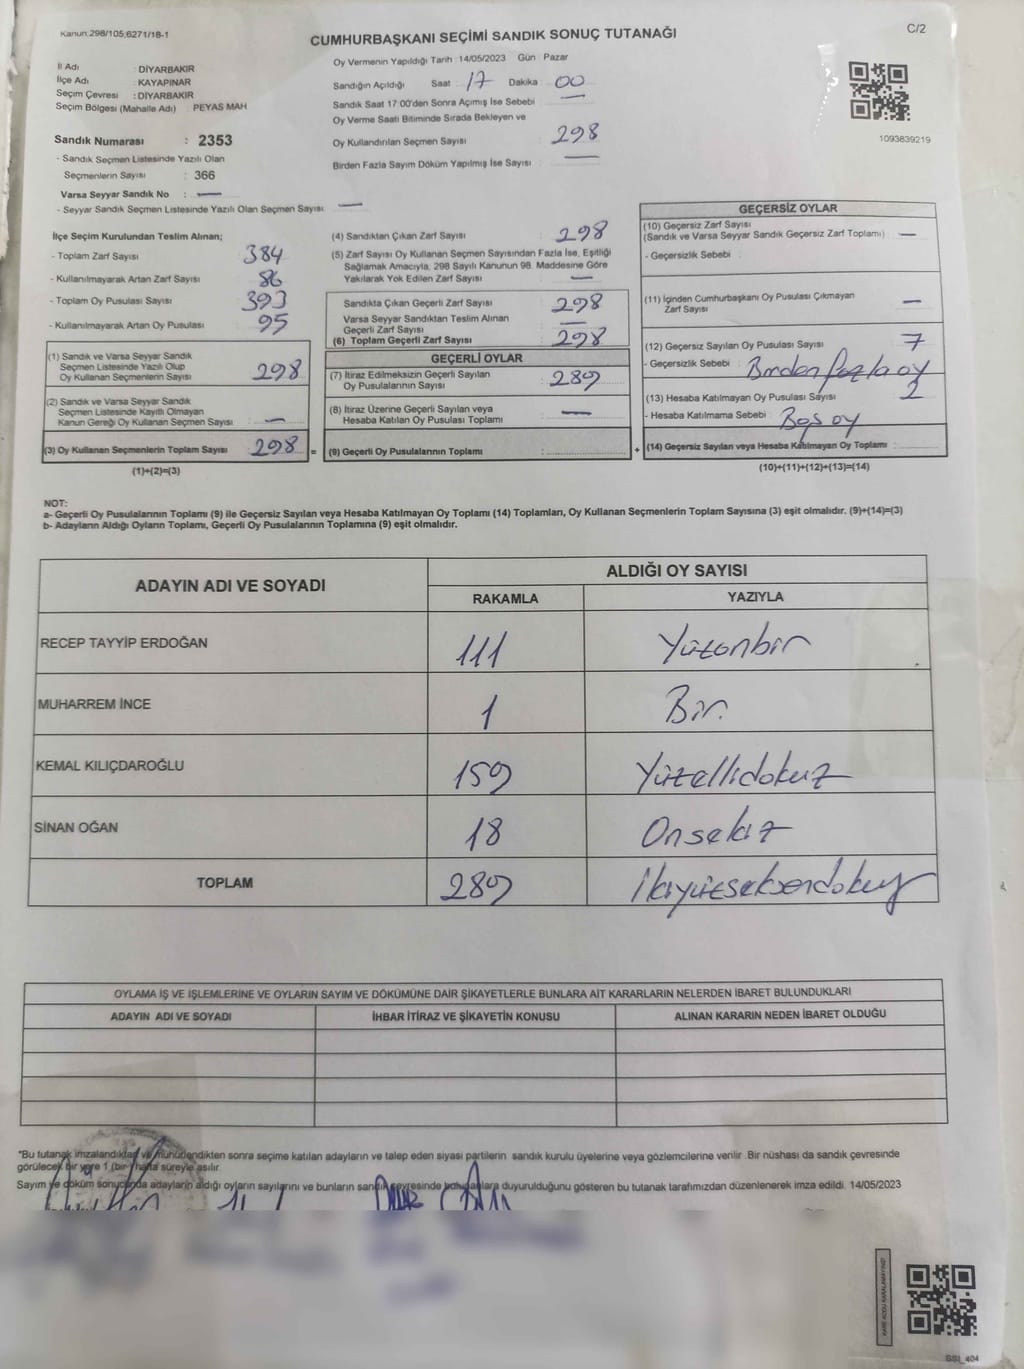 Kanun:298/105;6271/18-1
CUMHURBAŞKANI SEÇİMİ SANDIK SONUÇ TUTANAĞI
C/2
İl Adı : DİYARBAKIR
İlçe Adı : KAYAPINAR
Seçim Çevresi : DİYARBAKIR
Seçim Bölgesi (Mahalle Adı) : PEYAS MAH
Sandık Numarası : 2353
- Sandık Seçmen Listesinde Yazılı Olan
Seçmenlerin Sayısı : 366
Varsa Seyyar Sandık No : —
- Seyyar Sandık Seçmen Listesinde Yazılı Olan Seçmen Sayısı: —
Oy Vermenin Yapıldığı Tarih :14/05/2023 Gün : Pazar
Sandığın Açıldığı Saat : 17 Dakika : 00
Sandık Saat 17:00'den Sonra Açmış İse Sebebi : —
Oy Verme Saati Bitiminde Sırada Bekleyen ve
Oy Kullandırılan Seçmen Sayısı : 298
Birden Fazla Sayım Döküm Yapılmış İse Sayısı : —
1093839219
İlçe Seçim Kurulundan Teslim Alınan;
- Toplam Zarf Sayısı : 384
- Kullanılmayarak Artan Zarf Sayısı : 86
- Toplam Oy Pusulası Sayısı : 393
- Kullanılmayarak Artan Oy Pusulası : 95
(1) Sandık ve Varsa Seyyar Sandık
Seçmen Listesinde Yazılı Olup
Oy Kullanan Seçmenlerin Sayısı : 298
(2) Sandık ve Varsa Seyyar Sandık
Seçmen Listesinde Kayıtlı Olmayan
Kanun Gereği Oy Kullanan Seçmen Sayısı : —
(3) Oy Kullanan Seçmenlerin Toplam Sayısı : 298
(1)+(2)=(3)
=
(4) Sandıktan Çıkan Zarf Sayısı : 298
(5) Zarf Sayısı Oy Kullanan Seçmen Sayısından Fazla İse, Eşitliği
Sağlamak Amacıyla; 298 Sayılı Kanunun 98. Maddesine Göre
Yakılarak Yok Edilen Zarf Sayısı : —
Sandıkta Çıkan Geçerli Zarf Sayısı : 298
Varsa Seyyar Sandıktan Teslim Alınan
Geçerli Zarf Sayısı : —
(6) Toplam Geçerli Zarf Sayısı : 298
GEÇERLİ OYLAR
(7) İtiraz Edilmeksizin Geçerli Sayılan
Oy Pusulalarının Sayısı : 289
(8) İtiraz Üzerine Geçerli Sayılan veya
Hesaba Katılan Oy Pusulası Toplamı : —
(9) Geçerli Oy Pusulalarının Toplamı :
+
GEÇERSİZ OYLAR
(10) Geçersiz Zarf Sayısı
(Sandık ve Varsa Seyyar Sandık Geçersiz Zarf Toplamı) : —
- Geçersizlik Sebebi :
(11) İçinden Cumhurbaşkanı Oy Pusulası Çıkmayan
Zarf Sayısı : —
(12) Geçersiz Sayılan Oy Pusulası Sayısı : 7
- Geçersizlik Sebebi : Birden fazla oy
(13) Hesaba Katılmayan Oy Pusulası Sayısı : 2
- Hesaba Katılmama Sebebi : Boş oy
(14) Geçersiz Sayılan veya Hesaba Katılmayan Oy Toplamı :
(10)+(11)+(12)+(13)=(14)
NOT:
a- Geçerli Oy Pusulalarının Toplamı (9) ile Geçersiz Sayılan veya Hesaba Katılmayan Oy Toplamı (14) Toplamları, Oy Kullanan Seçmenlerin Toplam Sayısına (3) eşit olmalıdır. (9)+(14)=(3)
b- Adayların Aldığı Oyların Toplamı, Geçerli Oy Pusulalarının Toplamına (9) eşit olmalıdır.
ADAYIN ADI VE SOYADI
ALDIĞI OY SAYISI
RAKAMLA YAZIYLA
RECEP TAYYİP ERDOĞAN 111 Yüzonbir
MUHARREM İNCE 1 Bir.
KEMAL KILIÇDAROĞLU 159 Yüzellidokuz
SİNAN OĞAN 18 Onsekiz
TOPLAM 289 İkiyüzseksendokuz
OYLAMA İŞ VE İŞLEMLERİNE VE OYLARIN SAYIM VE DÖKÜMÜNE DAİR ŞİKAYETLERLE BUNLARA AİT KARARLARIN NELERDEN İBARET BULUNDUKLARI
ADAYIN ADI VE SOYADI İHBAR İTİRAZ VE ŞİKAYETİN KONUSU ALINAN KARARIN NEDEN İBARET OLDUĞU
*Bu tutanak imzalandıktan ve mühürlendikten sonra seçime katılan adayların ve talep eden siyasi partilerin sandık kurulu üyelerine veya gözlemcilerine verilir. Bir nüshası da sandık çevresinde
görülecek bir yere 1 (bir) hafta süreyle asılır.
Sayım ve döküm sonucunda adayların aldığı oyların sayılarını ve bunların sandık çevresinde bulunanlara duyurulduğunu gösteren bu tutanak tarafımızdan düzenlenerek imza edildi. 14/05/2023
KARE KODU KARALAMAYINIZ!